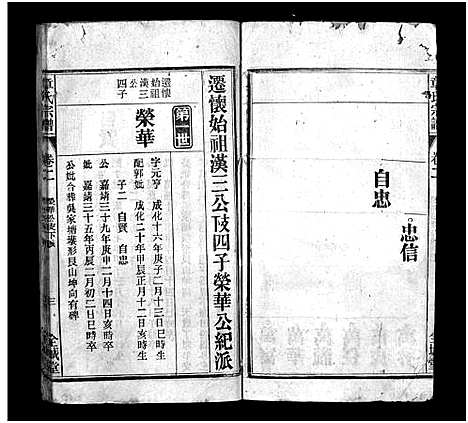 自忠
忠信
遷懷始祖漢三公攴四子榮華公紀派
第一世
遷懷始祖漢三四子
榮華
字元亨 成化十六年庚子二月十三日巳時生
配郭妣 成化二十年甲辰正月十二日亥時生
子二 自賢 自忠
公 嘉靖三十九年庚申二月十四日亥時卒
妣 嘉靖三十五年丙辰二月初二日巳時卒
公妣合葬吳家塘壋形艮山坤向有碑
章氏宗譜 卷二
三
全城堂